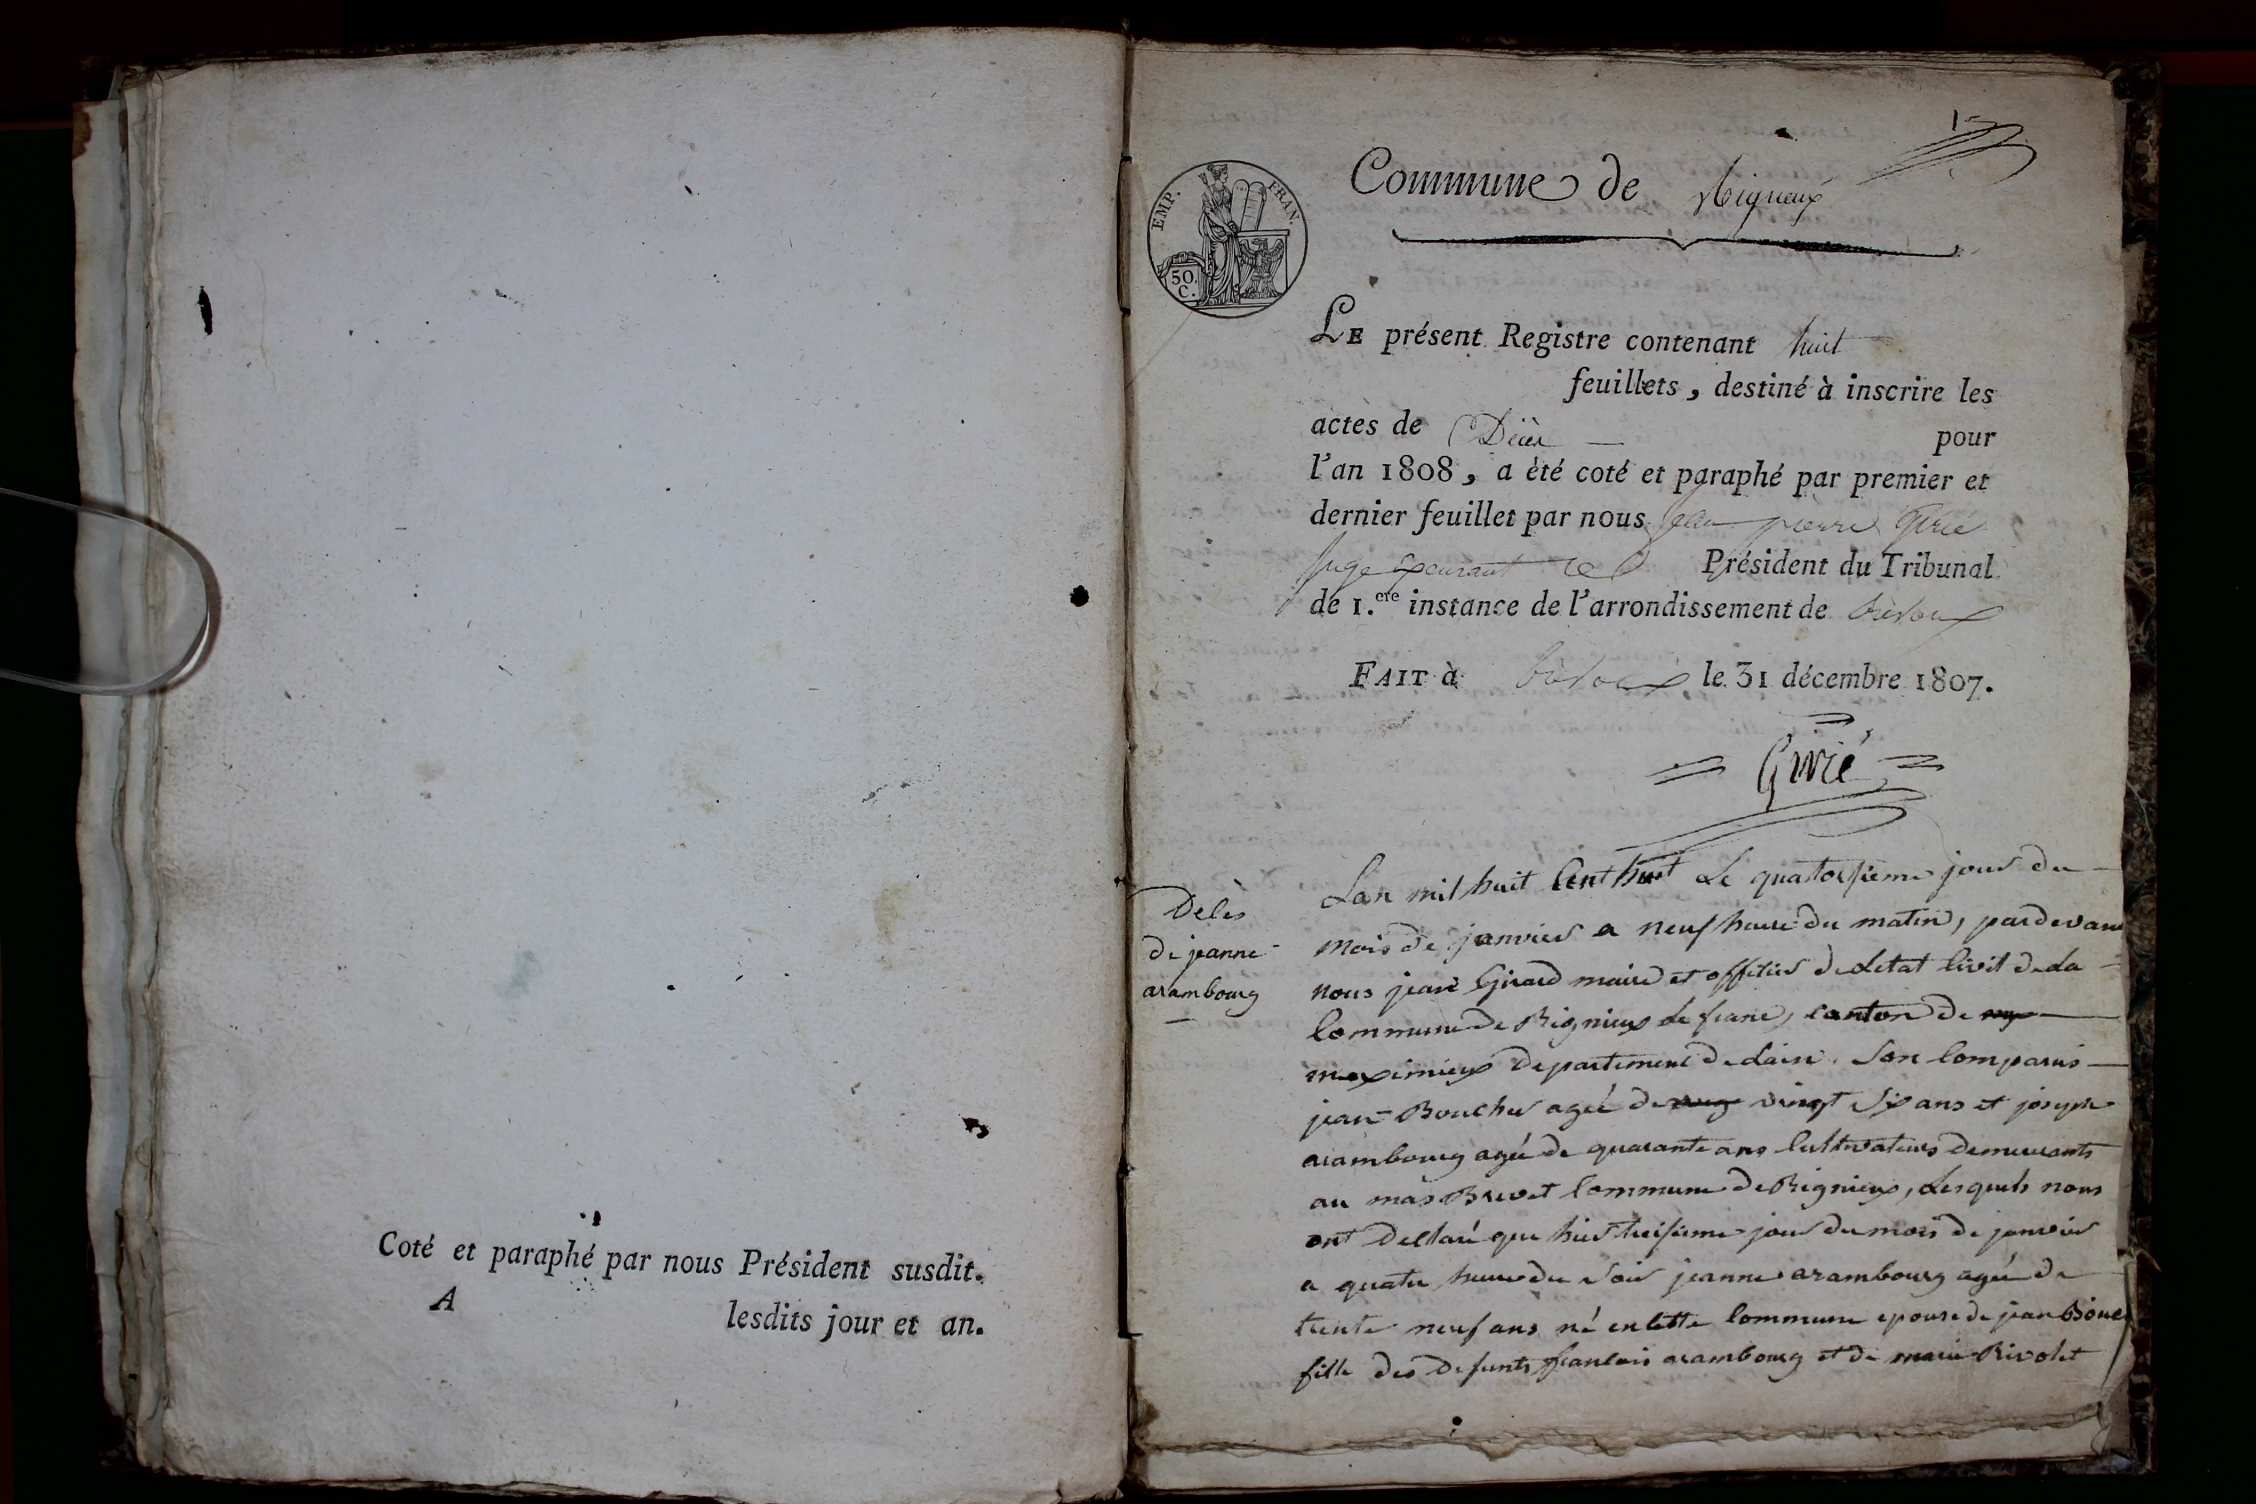 Coté et paraphé par nous Président susdit.
A lesdits jour et an.
1
EMP. FRAN.
50. C.
Commune de Rigneux
LE présent Registre contenant huit
feuillets, destiné à inscrire les
actes de Décès pour
l'an 1808, a été coté et paraphé par premier et
dernier feuillet par nous jean pierre Girié
juge Président du Tribunal
de 1.ere instance de l'arrondissement de trévoux
FAIT à trévoux le 31 décembre 1807.
Girié
Deces
de jeanne
arambourg
Lan mil huit Cent huit Le quatorsieme jour du
mois de janvier a neuf heure du matin, pardevant
nous jean Girard maire et officier de Letat Civil de La
Commune de Rignieux Le franc, canton de
meximieux departement de Lain. Son Comparus
jean Boucher ageé de vingt Six ans et joseph
arambourg ageé de quarante ans Cultivateurs demeurants
au mas Brevet Commune de Rignieux, Lesquels nous
ont declaré que hier treisieme jour du mois de janvier
a quatre heure du Soir jeanne arambourg ageé de
trente neuf ans né en Cette Commune epouse de jean
fille des defunts francois arambourg et de marie Rivolet